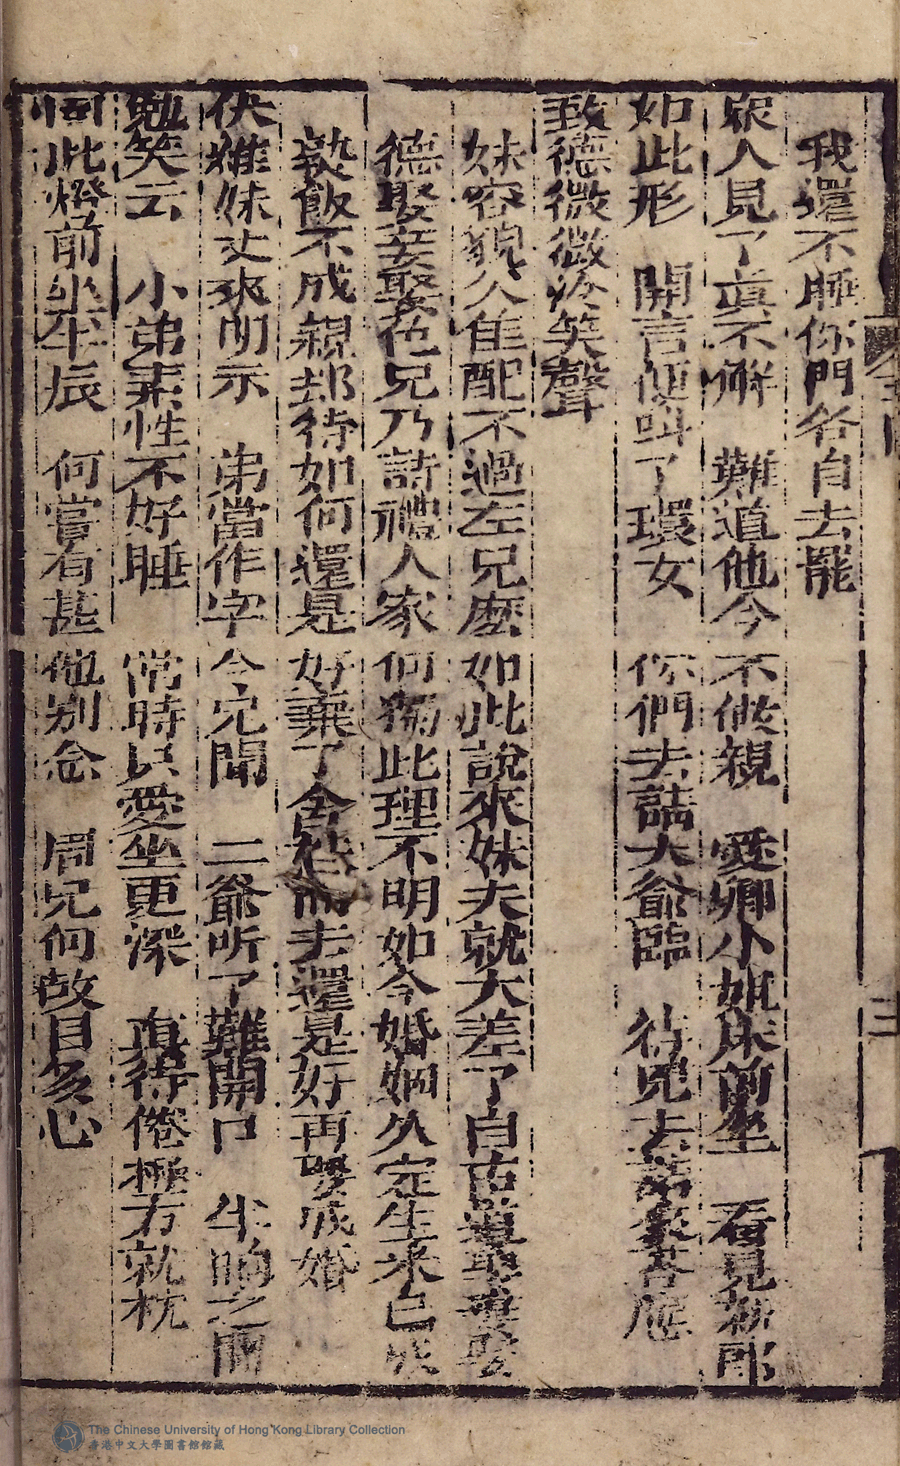 我還不睡你門各自去罷
眾人見了真不解　難道他今不做親　愛卿小姐床前坐　看見新郎
如此形　開言便叫了環女　你們去請大爺臨　待兒去請家答應
致德微微冷笑聲
妹容貌人隹配不過左兄麽如此說來妹夫就大差了自古道娶妻娶
德娶妾娶色兄乃詩禮人家何獨此理不明如今婚姻久定生米已成
熟飯不成親却待如何還是好棄了舍妹而去還是好再娶成婚
快雅妹丈來明示　弟當作字今完聞　二爺听了難開口　半晌之間
勉笑云　小弟素性不好睡　常時只愛坐更深　直待倦極方就枕
同此燈前坐半辰　何嘗有甚他别念　周兄何故自多心
三
The Chinese University of Hong Kong Library Collection
香港中文大學圖書館館藏